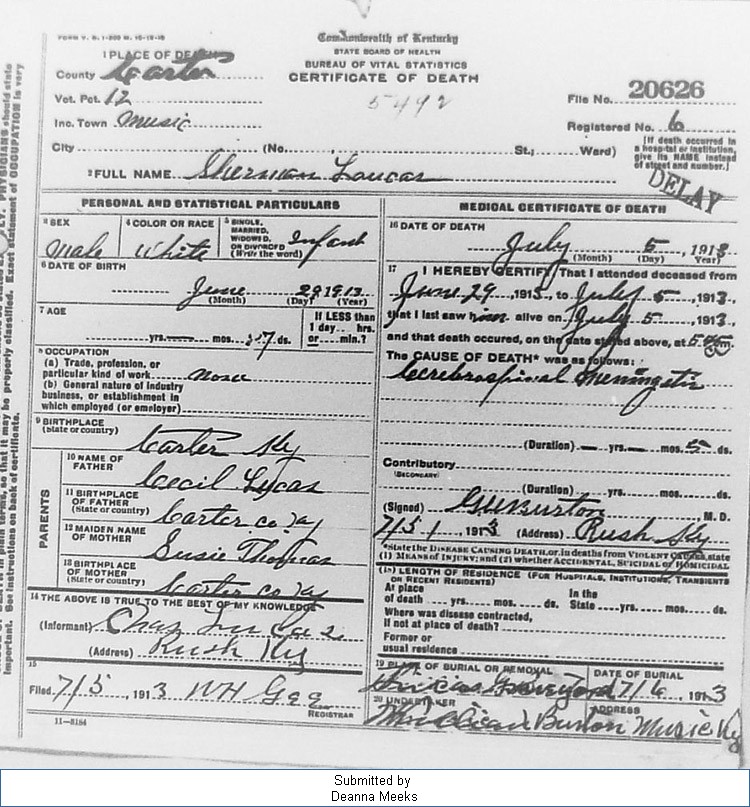 FORM V. S. 1-200 M. 10-12-10
Commonwealth of Kentucky
STATE BOARD OF HEALTH
BUREAU OF VITAL STATISTICS
CERTIFICATE OF DEATH
1 PLACE OF DEATH
County Carter
Vot. Pct. 12
5492
File No. 20626
Inc. Town Music
Registered No. 6
City (No. St.; Ward)
[If death occurred in a hospital or institution, give its NAME instead of street and number.]
2 FULL NAME Sherman Loucas
DELAY
PERSONAL AND STATISTICAL PARTICULARS
3 SEX
Male
4 COLOR OR RACE
White
5 SINGLE, MARRIED, WIDOWED, OR DIVORCED (Write the word)
Infant
6 DATE OF BIRTH
June 29 1913
(Month) (Day) (Year)
7 AGE
yrs. mos. 7 ds.
If LESS than 1 day hrs. or min.?
8 OCCUPATION
(a) Trade, profession, or particular kind of work none
(b) General nature of industry business, or establishment in which employed (or employer)
9 BIRTHPLACE
(State or country) Carter Ky
PARENTS
10 NAME OF FATHER Cecil Lucas
11 BIRTHPLACE OF FATHER (State or country) Carter co Ky
12 MAIDEN NAME OF MOTHER Susie Thomas
13 BIRTHPLACE OF MOTHER (State or country) Carter co Ky
14 THE ABOVE IS TRUE TO THE BEST OF MY KNOWLEDGE
(Informant) Chas
(Address) Rush Ky
15
Filed 7/5, 1913 WH Gee
REGISTRAR
11-3184
MEDICAL CERTIFICATE OF DEATH
16 DATE OF DEATH
July 5, 1913
(Month) (Day) (Year)
17 I HEREBY CERTIFY That I attended deceased from
June 29 1913, to July 5 1913,
that I last saw him alive on July 5 1913,
and that death occured, on the date stated above, at m.
The CAUSE OF DEATH* was as follows:
Cerebrospinal Meningetis
(Duration) yrs. mos. 5 ds.
Contributory
(SECONDARY)
(Duration) yrs. mos. ds.
(Signed) Burton M.D.
7/5/, 1913 (Address) Rush Ky
*State the DISEASE CAUSING DEATH, or, in deaths from VIOLENT CAUSES, state
(1) MEANS OF INJURY; and (2) whether ACCIDENTAL, SUICIDAL or HOMICIDAL
(18) LENGTH OF RESIDENCE (FOR HOSPITALS, INSTITUTIONS, TRANSIENTS OR RECENT RESIDENTS)
At place of death yrs. mos. ds. In the State yrs. mos. ds.
Where was disease contracted,
if not at place of death?
Former or
usual residence
19 PLACE OF BURIAL OR REMOVAL
Graveyard
DATE OF BURIAL
7/6, 1913
20 UNDERTAKER
Burton
ADDRESS
Music Ky
Submitted by
Deanna Meeks